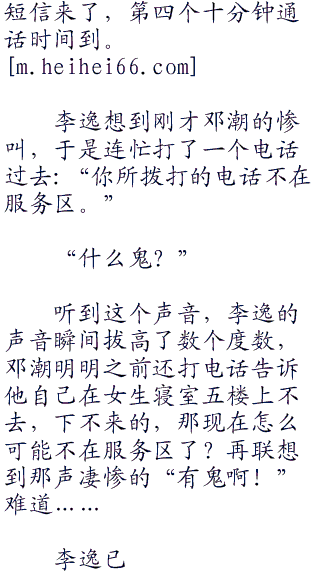 短信来了，第四个十分钟通
话时间到。
[m.heihei66.com]
李逸想到刚才邓潮的惨
叫，于是连忙打了一个电话
过去：“你所拨打的电话不在
服务区。”
“什么鬼？”
听到这个声音，李逸的
声音瞬间拔高了数个度数，
邓潮明明之前还打电话告诉
他自己在女生寝室五楼上不
去，下不来的，那现在怎么
可能不在服务区了？再联想
到那声凄惨的“有鬼啊！”
难道……
李逸已